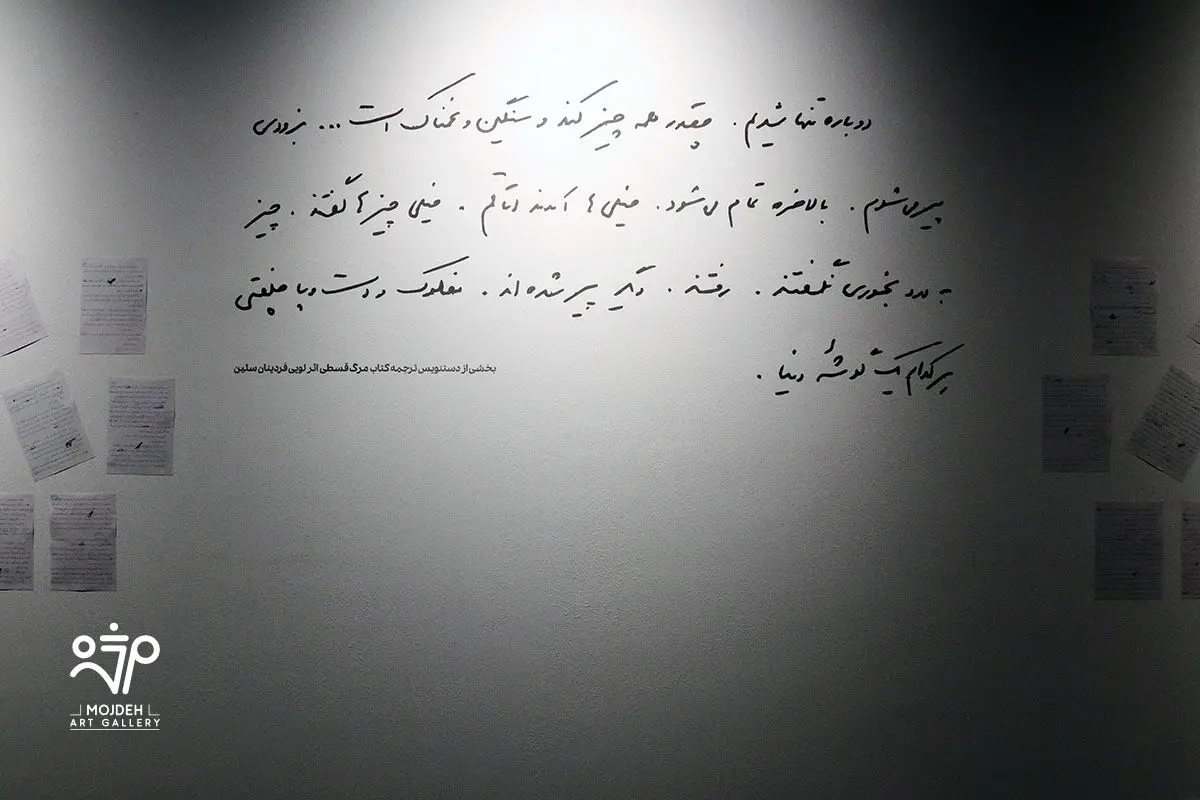 دوباره تنها شدیم. چقدر همه چیز کند و سنگین و غمناک است... بزودی
پیر می‌شوم. بالاخره تمام می‌شود. خیلی‌ها آمدند اتاقم. خیلی چیزها گفتند. چیز
به درد بخوری نگفتند. رفتند. دیگر پیر شده‌اند. مفلوک و دست و پا چلفتی
هر کدام یک گوشهٔ دنیا.
بخشی از دستنویس ترجمه کتاب مرگ قسطی اثر لویی فردینان سلین
مژده
MOJDEH
ART GALLERY